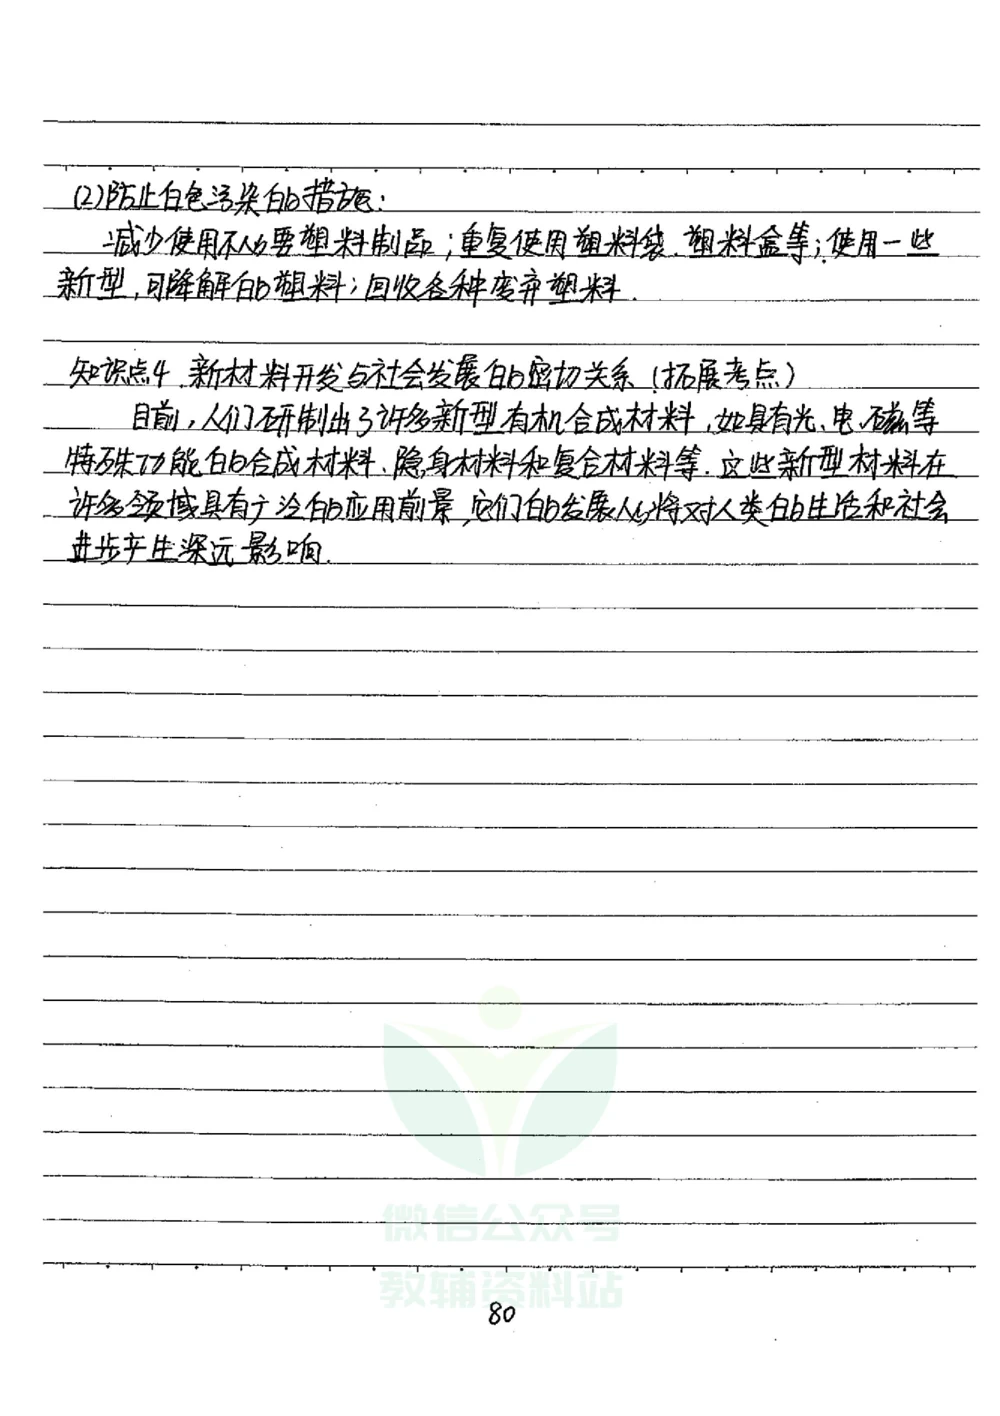 (2)防止白色污染的措施:
减少使用不必要塑料制品;重复使用塑料袋、塑料盒等;使用一些
新型,可降解的塑料;回收各种废弃塑料.
知识点4、新材料开发与社会发展的密切关系(拓展考点)
目前,人们研制出了许多新型有机合成材料,如具有光、电、磁等
特殊功能的合成材料、隐身材料和复合材料等.这些新型材料在
许多领域具有广泛的应用前景,它们的发展必将对人类的生活和社会
进步产生深远影响.
微信公众号
教辅资料站
80